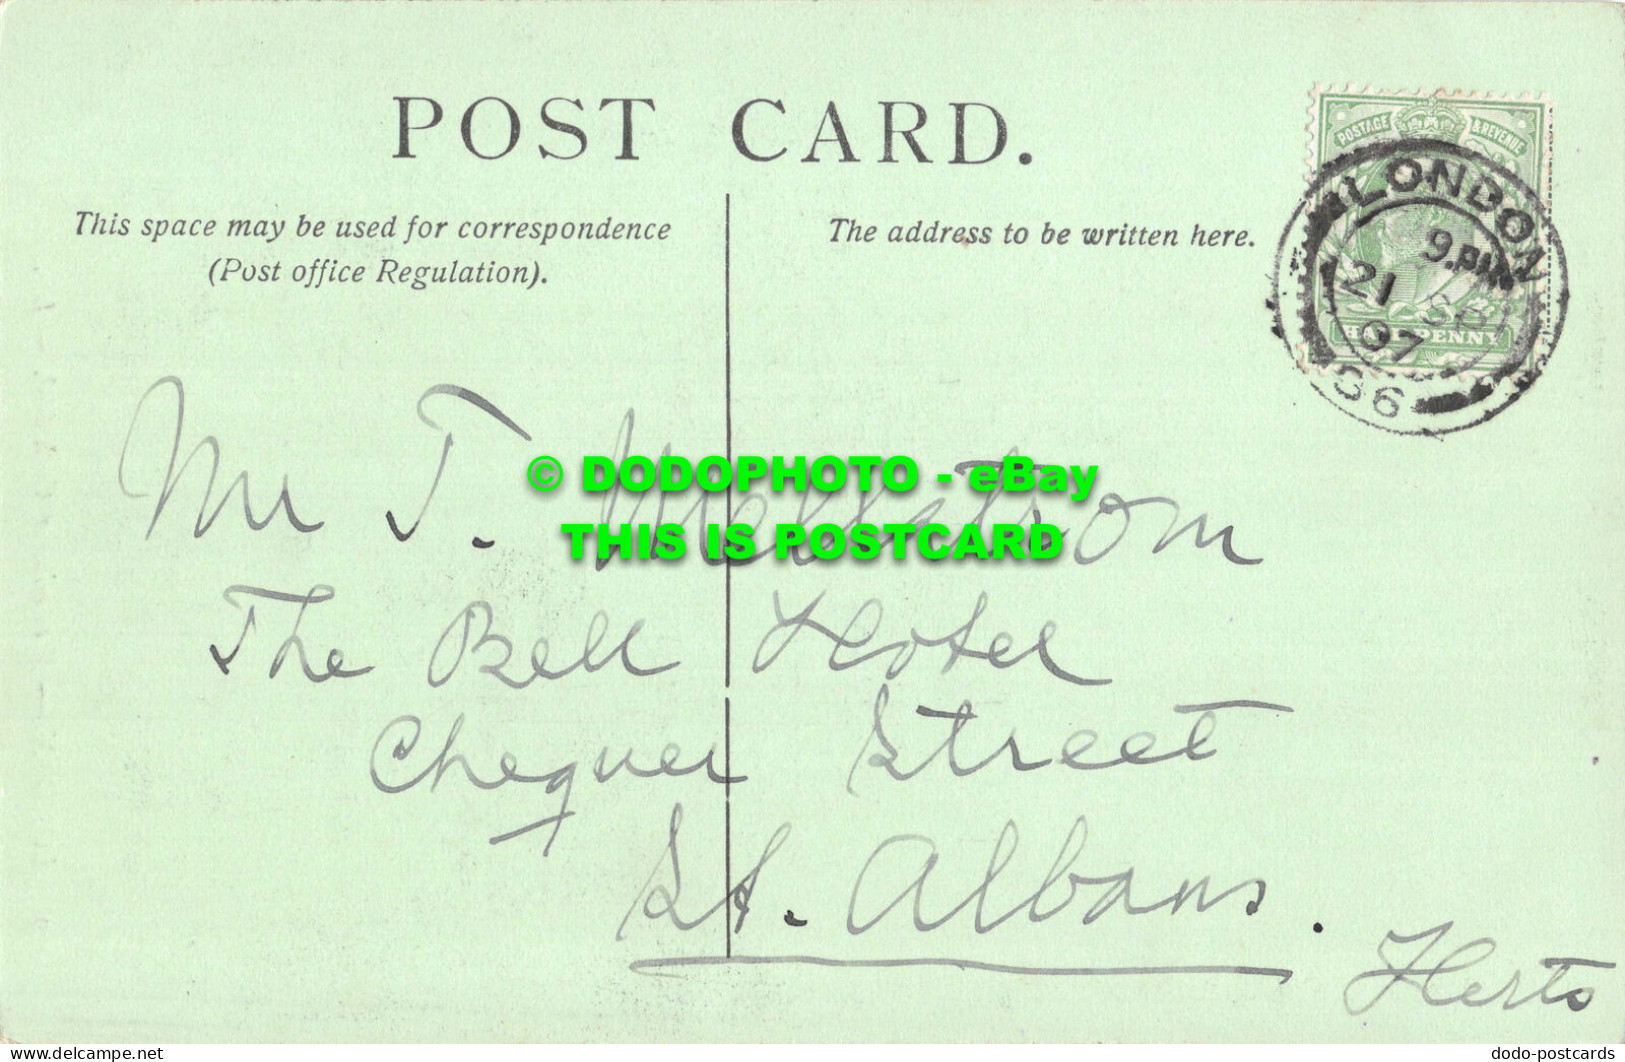 POST CARD.
This space may be used for correspondence
(Post office Regulation).
The address to be written here.
POSTAGE & REVENUE
HALFPENNY
LONDON
9.PM
21 SP
07
86
© DODOPHOTO - eBay
THIS IS POSTCARD
Mr T.
The Bell Hotel
Chequer Street
St. Albans.
Herts
dodo-postcards
www.delcampe.net